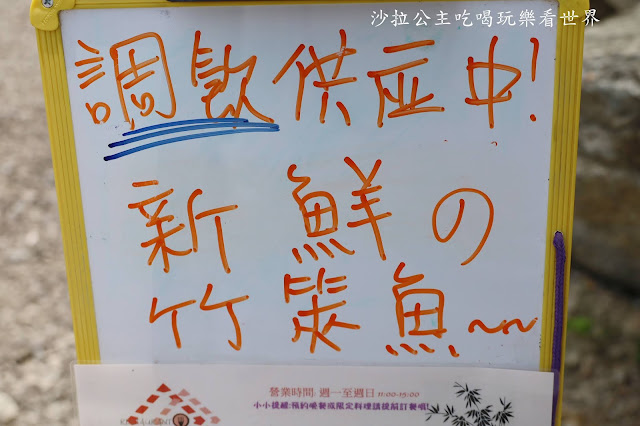 沙拉公主吃喝玩樂看世界
調飲供应中!
新鮮の
竹筴魚~~
營業時間: 週一至週日 11:00-15:00
小小提醒:預約晚餐或限定料理請提前訂餐唷!